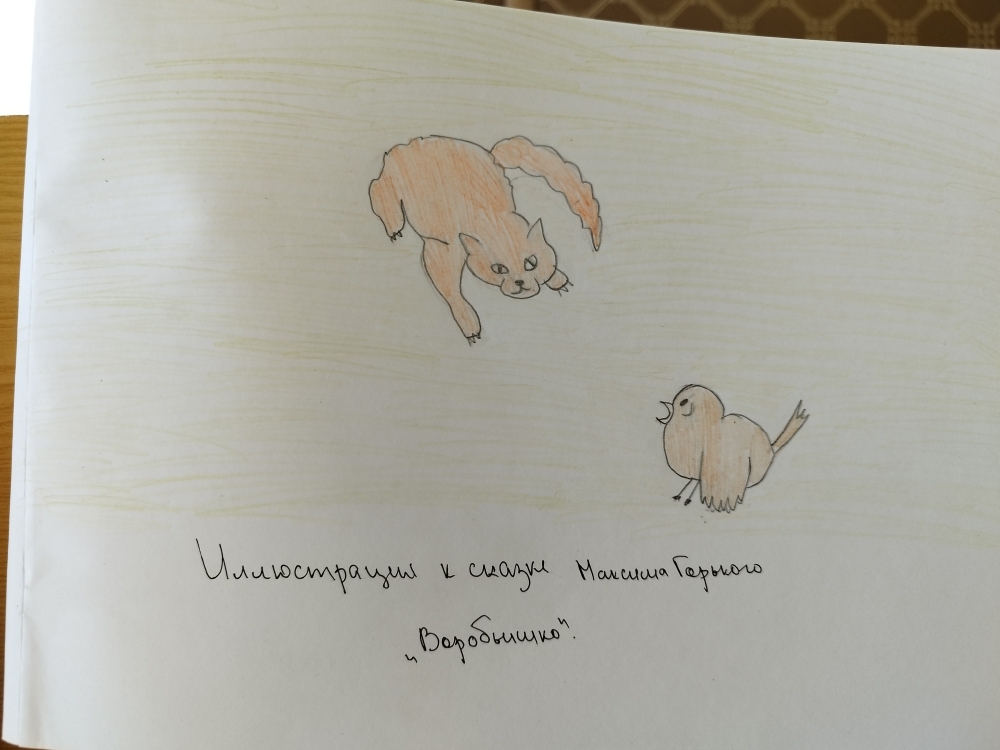 Иллюстрация к сказке Максима Горького
„Воробьишко".